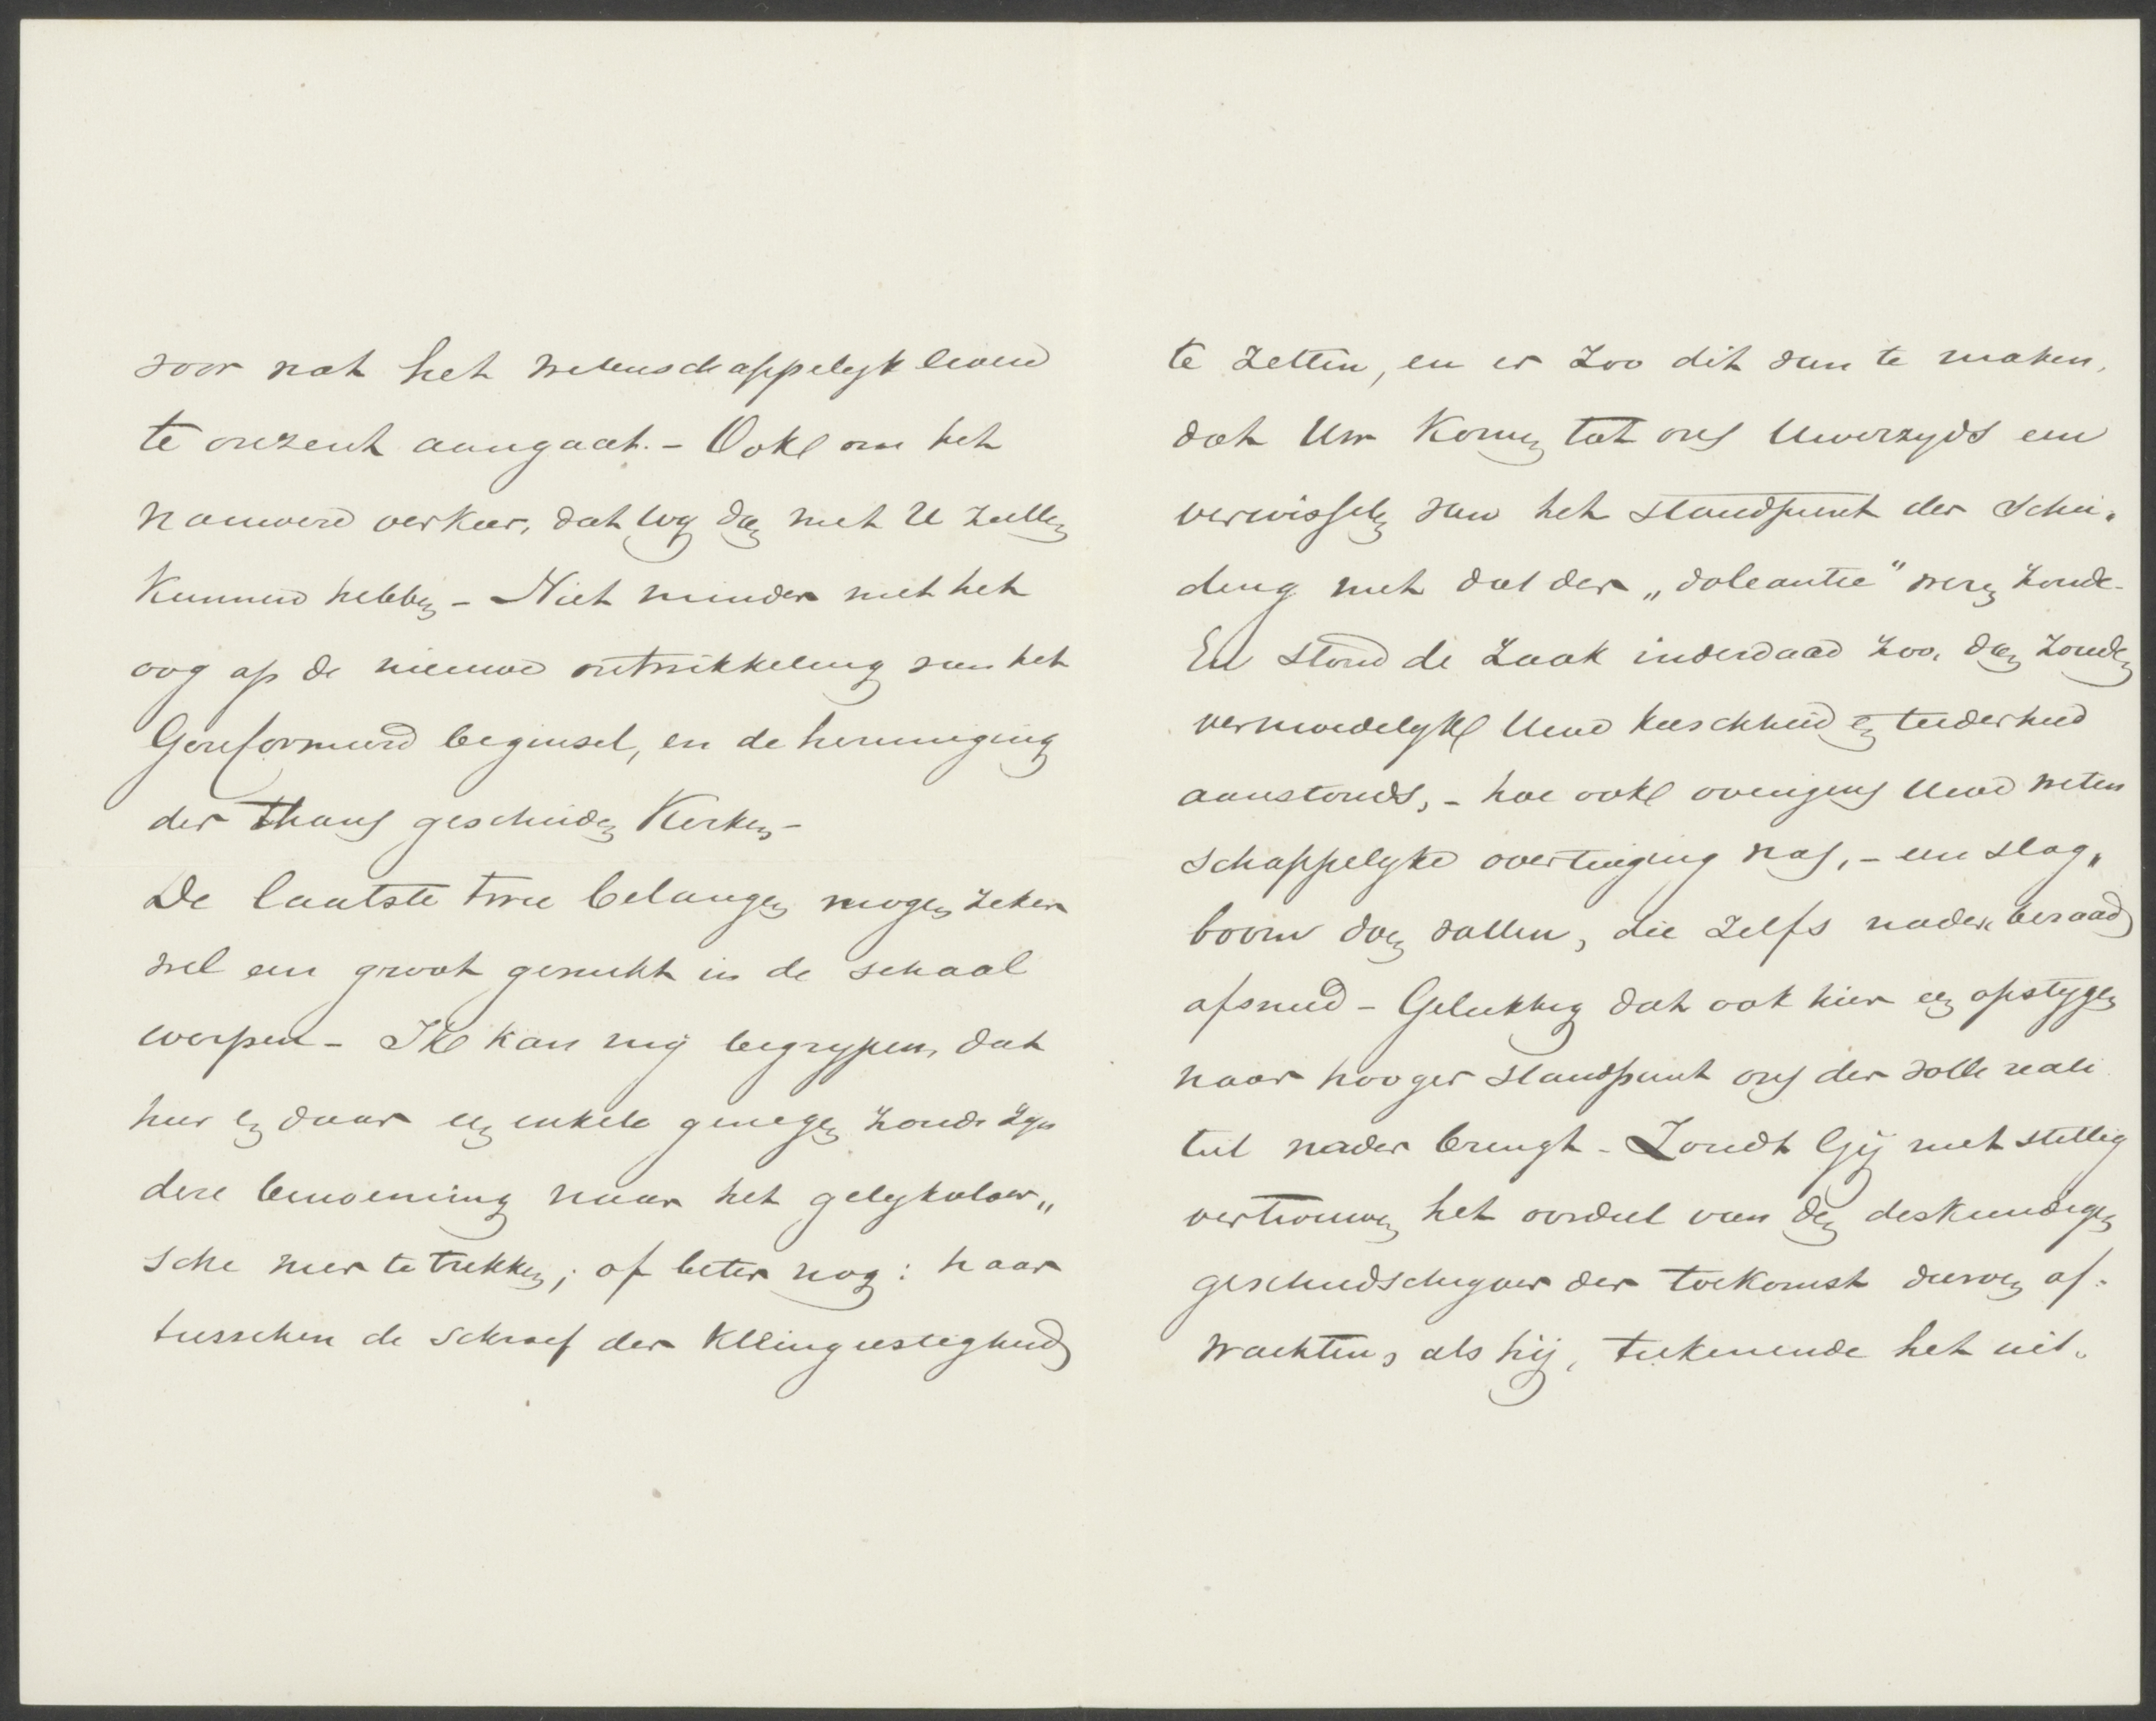 voor wat het wetenschappelyk leven
te onzent aangaat. – Ook om het
nauwere verkeer, dat wy dan met U zullen
kunnen hebben – Niet minder met het
oog op de nieuwe ontwikkeling van het
Gereformeerd beginsel, en de hereeniging
der thans gescheiden Kerken –
De laatste twee belangen mogen zeker
wel een groot gewicht in de schaal
werpen – Ik kan mij begrypen, dat
hier en daar een enkele genegen zoude zyn
deze benoeming naar het gelykvloer„
sche neer te trekken; of beter nog: haar
tusschen de schroef der Kleingeestigheid
te zetten, en er zoo dit van te maken,
dat Uw Komen tot ons Uwerzyds een
verwisselen van het standpunt der Schei„
ding met dat der „doleantie" wezen zoude –
En stond de zaak inderdaad zoo, dan zouden
vermoedelyk Uwe kieschheid en teederheid
aanstonds, – hoe ook overigens Uwe weten
schappelyke overtuiging was, – een slag„
boom doen vallen, die zelfs nader beraad
afsneed – Gelukkig dat ook hier een opstygen
naar hooger standpunt ons der volle reali
teit nader brengt – Zoudt Gij niet stellig
vertrouwen het oordeel van den deskundigen
geschiedschryver der toekomst durven af„
wachten, als hij, teekenende het uit„